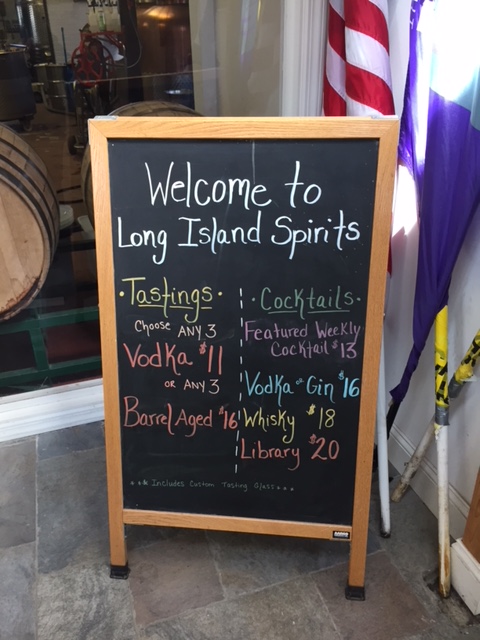 Welcome to
Long Island Spirits
·Tastings·
Choose ANY 3
Vodka $11
or ANY 3
Barrel Aged $16
·Cocktails·
Featured Weekly
Cocktail $13
Vodka or Gin $16
Whisky $18
Library $20
*** Includes Custom Tasting Glass ***